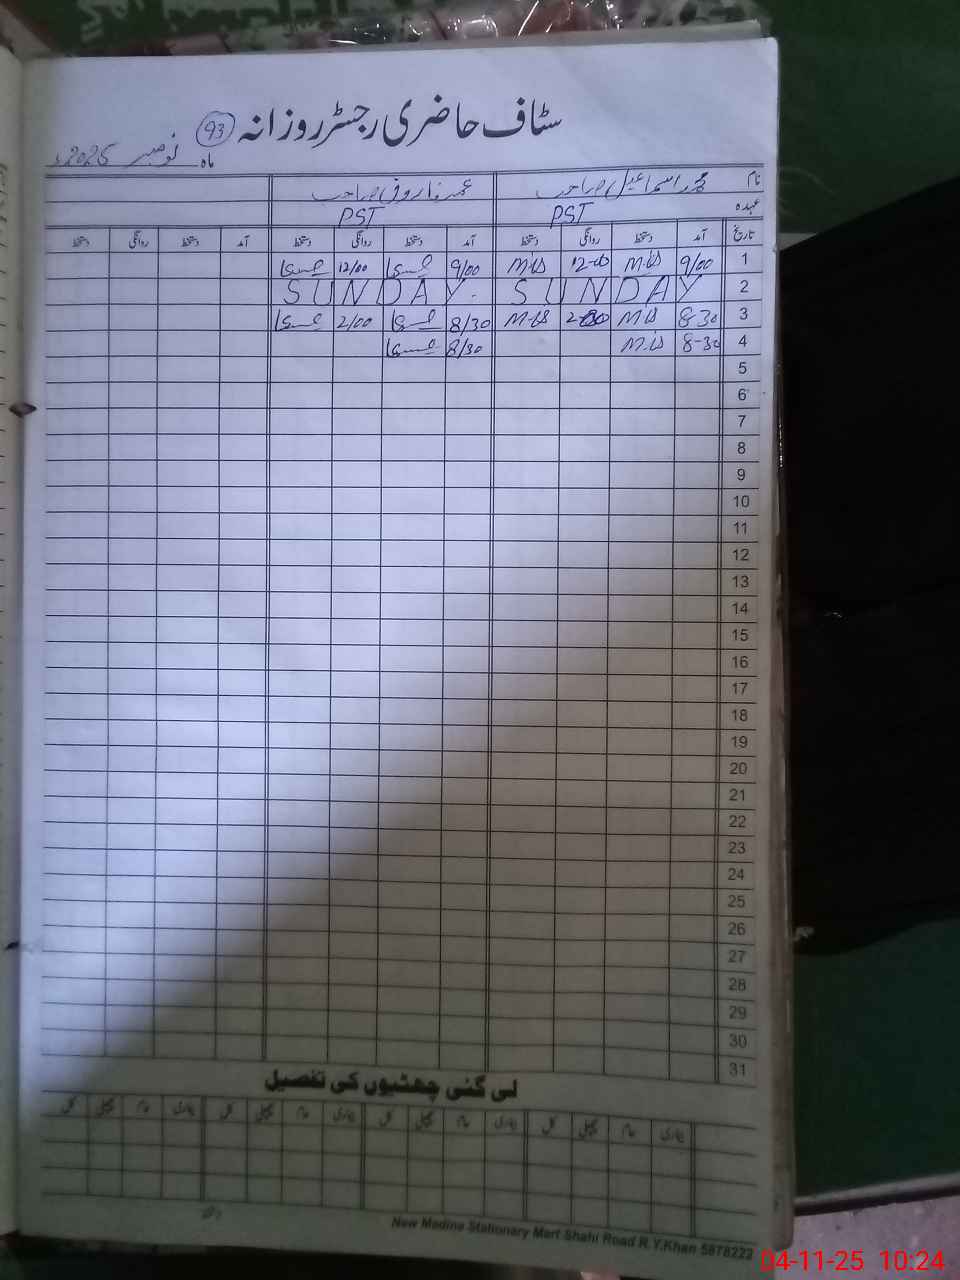 سٹاف حاضری رجسٹر روزانہ
93
ماہ نومبر 2025ء
نام محمد اسماعیل صاحب عمر فاروق صاحب
عہدہ PST PST
تاریخ آمد دستخط روانگی دستخط آمد دستخط روانگی دستخط آمد دستخط روانگی دستخط
1 9/00 M.IS 12-00 M.IS 9/00 12/00
2 SUNDAY SUNDAY.
3 8-30 M.IS 2-00 M.IS 8/30 2/00
4 8-30 M.IS 8/30
5
6
7
8
9
10
11
12
13
14
15
16
17
18
19
20
21
22
23
24
25
26
27
28
29
30
31
لی گئی چھٹیوں کی تفصیل
بیماری عام پچھلی کل بیماری عام پچھلی کل بیماری عام پچھلی کل بیماری عام پچھلی کل
New Madina Stationary Mart Shahi Road R.Y.Khan 5878222
04-11-25 10:24